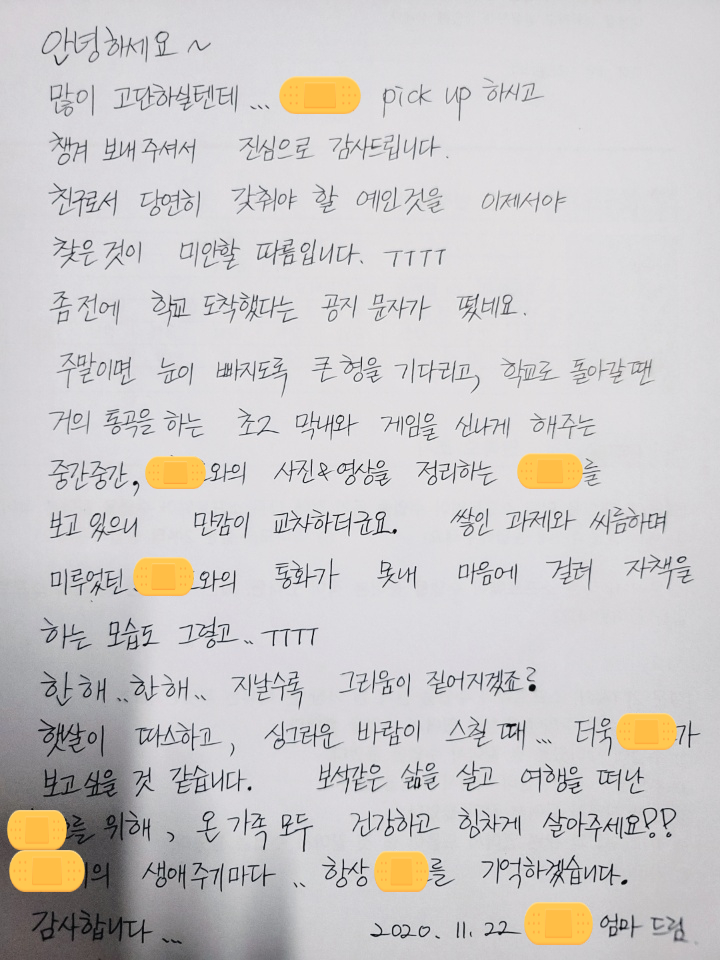 안녕하세요 ~
많이 고단하실텐테 ... pick up 하시고
챙겨 보내주셔서 진심으로 감사드립니다.
친구로서 당연히 갖춰야 할 예인것을 이제서야
찾은것이 미안할 따름입니다. ㅜㅜㅜㅜ
좀전에 학교 도착했다는 공지 문자가 떴네요.
주말이면 눈이 빠지도록 큰형을 기다리고, 학교로 돌아갈땐
거의 통곡을 하는 초2 막내와 게임을 신나게 해주는
중간중간, 와의 사진&영상을 정리하는 를
보고 있으니 만감이 교차하더군요. 쌓인 과제와 씨름하며
미루었던 와의 통화가 못내 마음에 걸려 자책을
하는 모습도 그렇고.. ㅜㅜㅜㅜ
한해..한해.. 지날수록 그리움이 짙어지겠죠?
햇살이 따스하고, 싱그러운 바람이 스칠 때... 더욱 가
보고싶을 것 같습니다. 보석같은 삶을 살고 여행을 떠난
를 위해, 온 가족 모두 건강하고 힘차게 살아주세요!!
의 생애주기마다 .. 항상 를 기억하겠습니다.
감사합니다... 2020. 11. 22 엄마 드림.